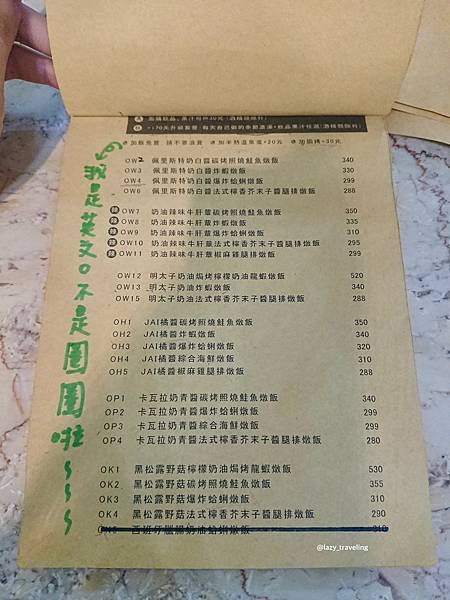 加購飲品、果汁可折30元 (酒精類除外)
+170元升級套餐 每天自己做的季節濃湯+飲品果汁任選 (酒精類除外)
加飯免費 請不要浪費 加半熟溫泉蛋+20元 加焗烤+50元
我是英文O不是圈圈啦~~~
OW2 佩里斯特奶白醬碳烤照燒鮭魚燉飯 340
OW3 佩里斯特奶白醬炸蝦燉飯 330
OW4 佩里斯特奶白醬爆炸蛤蜊燉飯 299
OW6 佩里斯特奶白醬法式檸香芥末子醬腿排燉飯 288
辣 OW7 奶油辣味牛肝蕈碳烤照燒鮭魚燉飯 350
辣 OW8 奶油辣味牛肝蕈炸蝦燉飯 335
辣 OW9 奶油辣味牛肝蕈爆炸蛤蜊燉飯 310
辣 OW10 奶油辣味牛肝蕈法式檸香芥末子醬腿排燉飯 295
辣 OW11 奶油辣味牛肝蕈椒麻雞腿排燉飯 299
OW12 明太子奶油焗烤檸檬奶油龍蝦燉飯 520
OW13 明太子奶油炸蝦燉飯 340
OW15 明太子奶油法式檸香芥末子醬腿排燉飯 288
OH1 JAI橘醬碳烤照燒鮭魚燉飯 350
OH2 JAI橘醬炸蝦燉飯 340
OH3 JAI橘醬爆炸蛤蜊燉飯 320
OH4 JAI橘醬綜合海鮮燉飯 310
OH5 JAI橘醬椒麻雞腿排燉飯 288
OP1 卡瓦拉奶青醬碳烤照燒鮭魚燉飯 340
OP2 卡瓦拉奶青醬爆炸蛤蜊燉飯 299
OP3 卡瓦拉奶青醬綜合海鮮燉飯 299
OP4 卡瓦拉奶青醬法式檸香芥末子醬腿排燉飯 280
OK1 黑松露野菇檸檬奶油焗烤龍蝦燉飯 530
OK2 黑松露野菇碳烤照燒鮭魚燉飯 355
OK3 黑松露野菇爆炸蛤蜊燉飯 310
OK4 黑松露野菇法式檸香芥末子醬腿排燉飯 290
西班牙臘腸奶油蛤蜊燉飯 310
@lazy_traveling